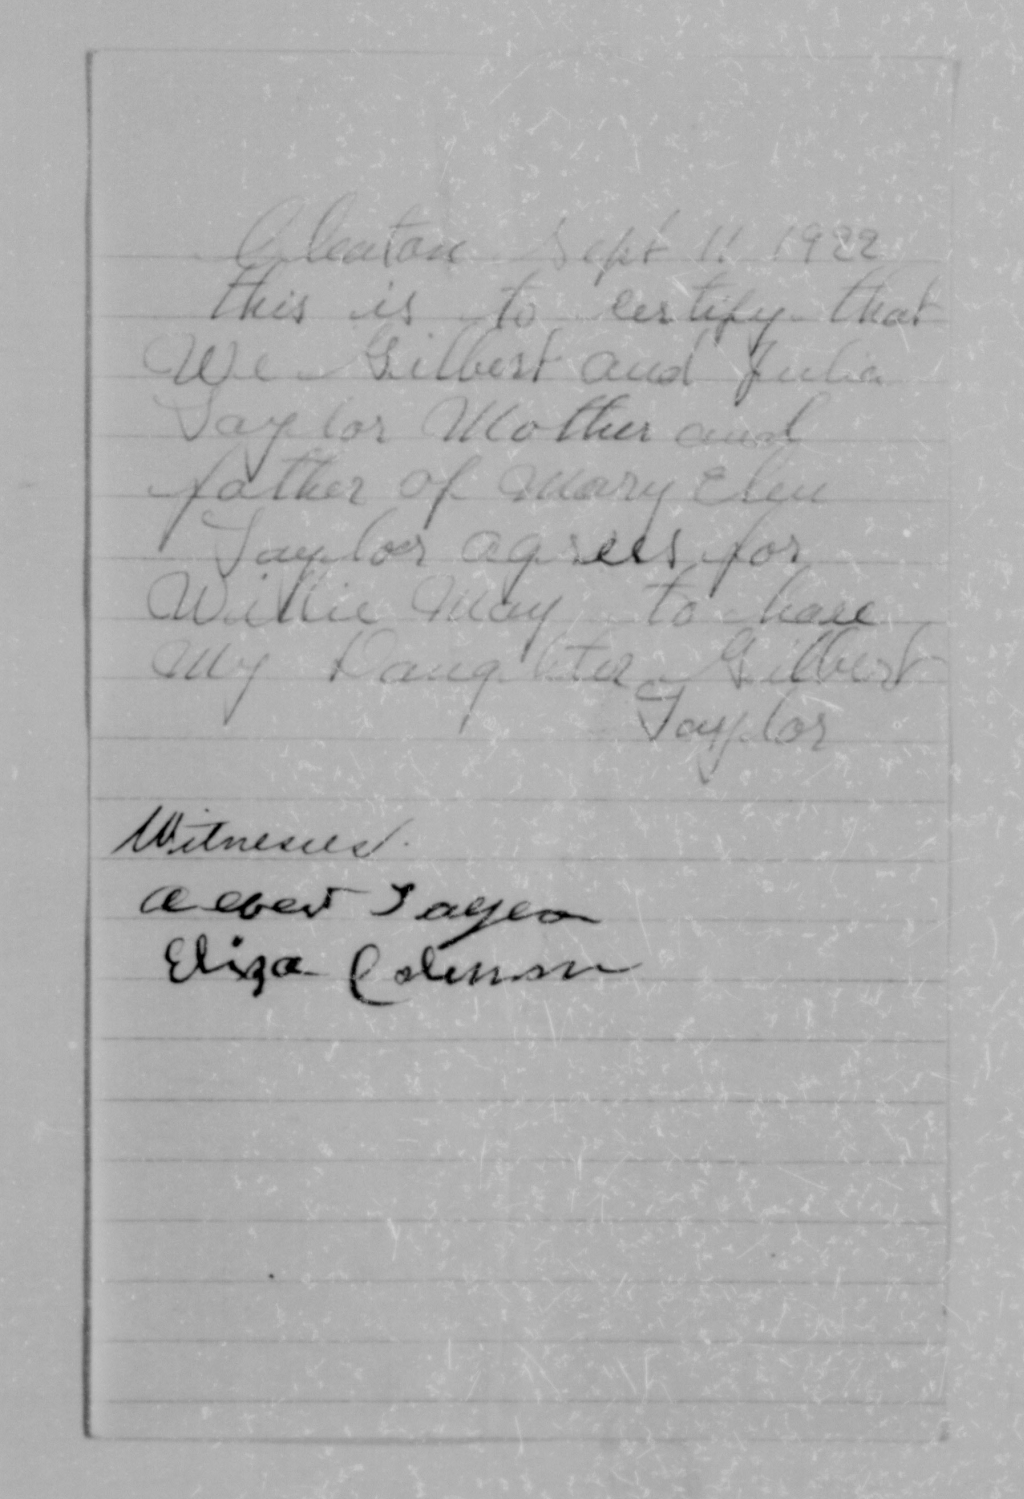 Cleaton Sept 11 1922
this is to certify that
We Gilbert and Julia
Taylor Mother and
father of Mary Elen
Taylor agrees for
Willie May to have
My Daughter Gilbert
Taylor
Witnesses
Albert Taylor
Eliza Coleman